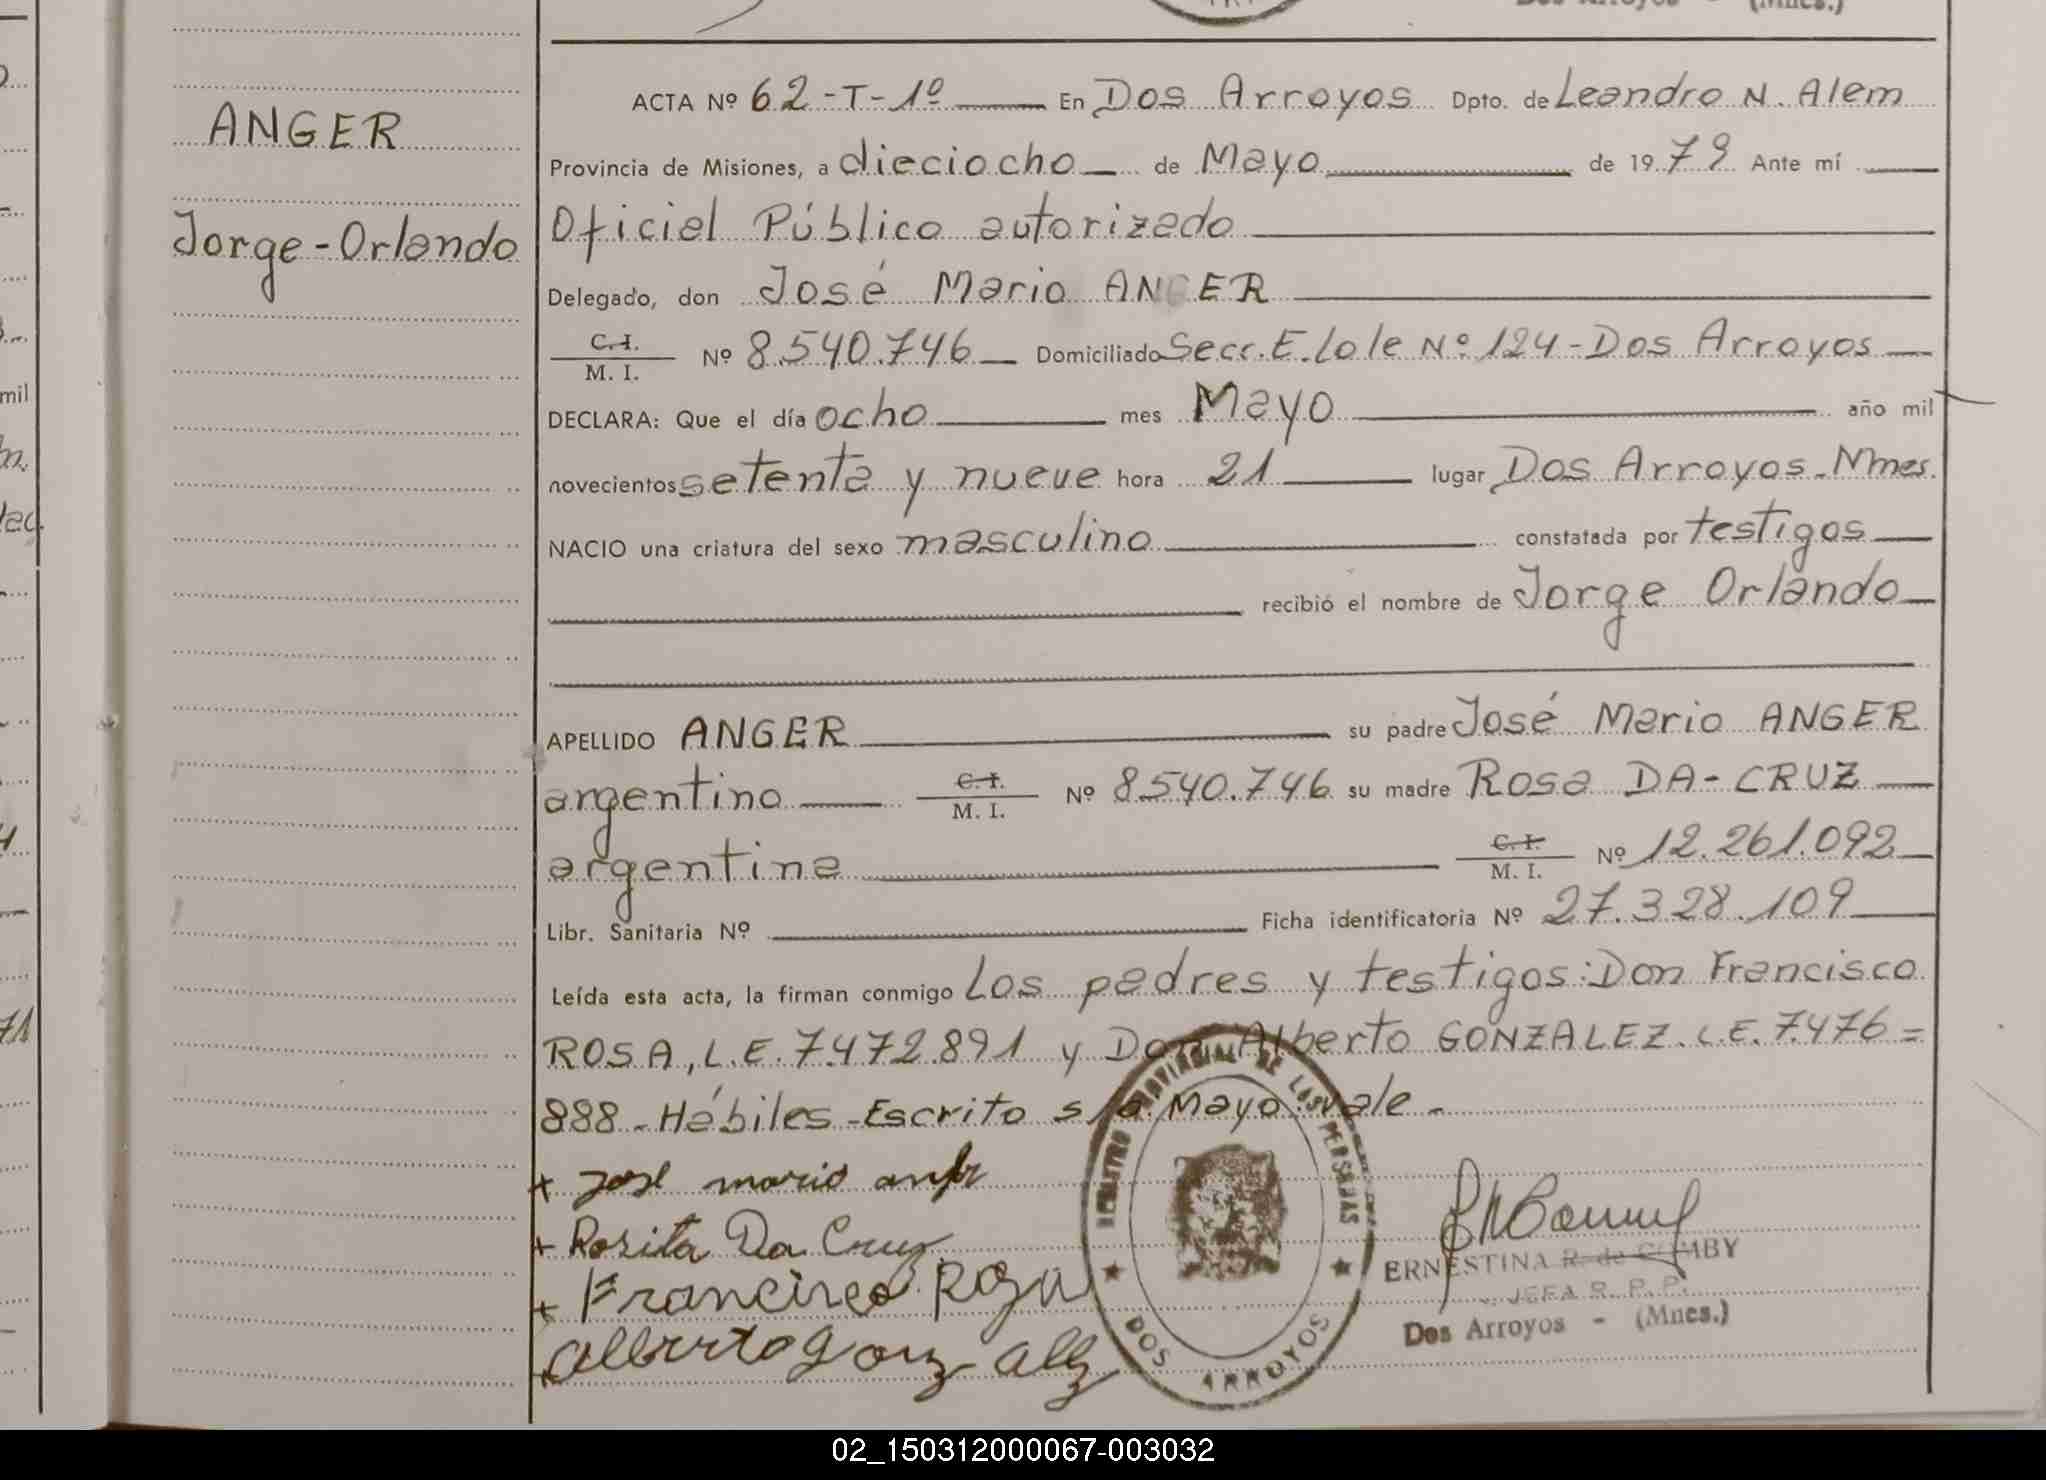 ANGER
Jorge-Orlando
ACTA Nº 62-T-1º En Dos Arroyos Dpto. de Leandro N. Alem
Provincia de Misiones, a dieciocho de Mayo de 1979 Ante mí
Oficial Público autorizado
Delegado, don José Mario ANGER
C.I.
M. I. Nº 8.540.746 Domiciliado Secc. E. lote Nº 124-Dos Arroyos
DECLARA: Que el día ocho mes Mayo año mil
novecientos setenta y nueve hora 21 lugar Dos Arroyos-Mnes.
NACIO una criatura del sexo masculino constatada por testigos
recibió el nombre de Jorge Orlando
APELLIDO ANGER su padre José Mario ANGER
argentino C.I.
M. I. Nº 8.540.746 su madre Rosa DA-CRUZ
argentina C.I.
M. I. Nº 12.261.092
Libr. Sanitaria Nº Ficha identificatoria Nº 27.328.109
Leída esta acta, la firman conmigo Los padres y testigos: Don Francisco
ROSA, L.E. 7.472.891 y Don Alberto GONZALEZ. L.E. 7.476=
888-Hábiles-Escrito s/a. Mayo: vale-
+ José mario
+ Rosita Da Cruz
+ Francisco Roza
+ alberto gonzalez
REGISTRO PROVINCIAL DE LAS PERSONAS
DOS ARROYOS
ERNESTINA R. de
JEFA R. P. P.
Dos Arroyos - (Mnes.)
02_150312000067-003032